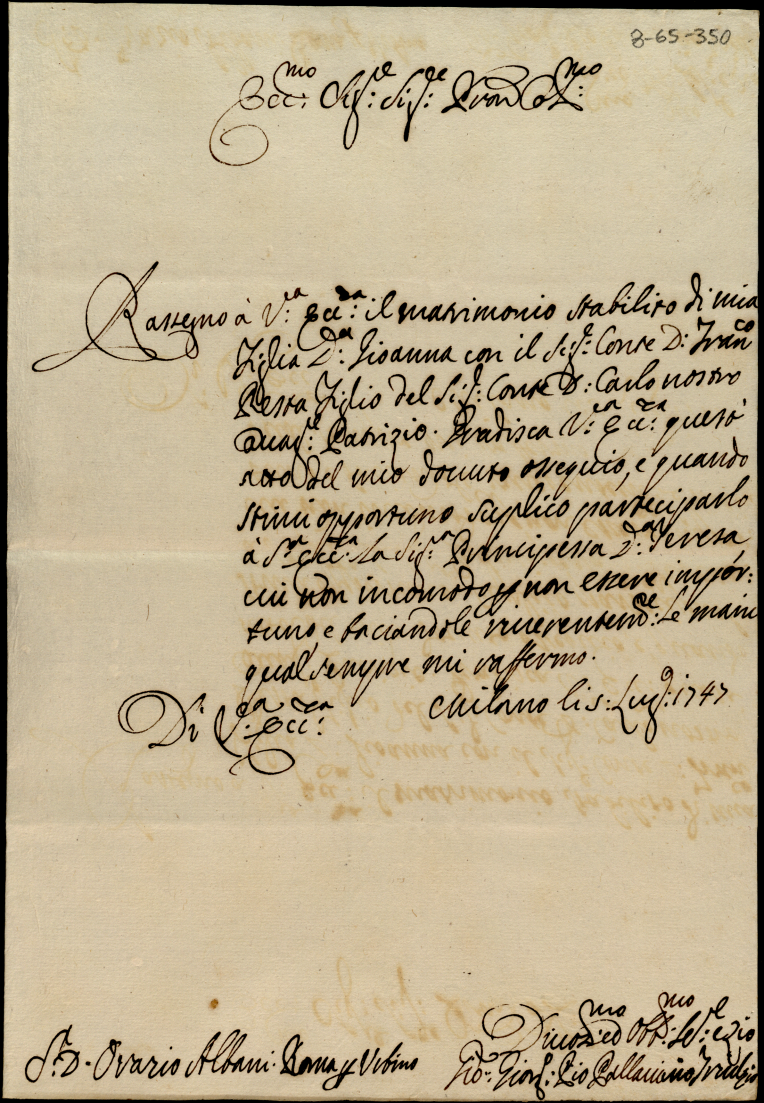 8-65-350
Ecc:mo Sig:re Sig:re Pron Col:mo
Rassegno à V:ra Ecc:za il matrimonio stabilito di mia
Figlia D:a Gioanna con il Sig:r Conte D: Fran:co
Resta Figlio del Sig:r Conte D: Carlo nostro
Patrizio. Gradisca V:ra Ecc:za quest'
atto del mio dovuto ossequio, e quando
stimi opportuno suplico parteciparlo
à S:a Ecc:za la Sig:ra Principessa D:a Teresa
cui non incomodo p non essere impor:
tuno, e baciandole riverentem:te le mani
qual sempre mi raffermo.
Di V:ra Ecc:za Milano li 5: Lug:o 1747
S:r D. Orazio Albani. Roma p Urbino
Divot:mo ed Obb:mo Se:re e Zio
Gio: Giorg: Pio Pallavicino Trivulzio